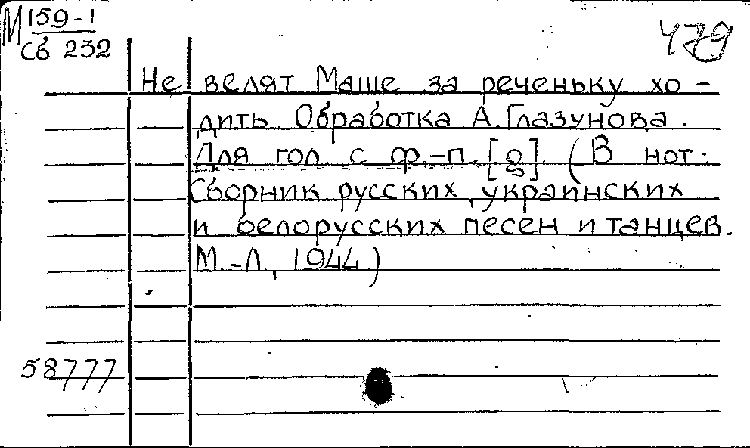 М 159-1
Сб 232
479
Не велят Маше за реченьку хо-
дить Обработка А. Глазунова.
Для гол. с ф.-п. [g]. (В нот.
Сборник русских, украинских
и белорусских песен и танцев.
М.-Л., 1944.)
58777